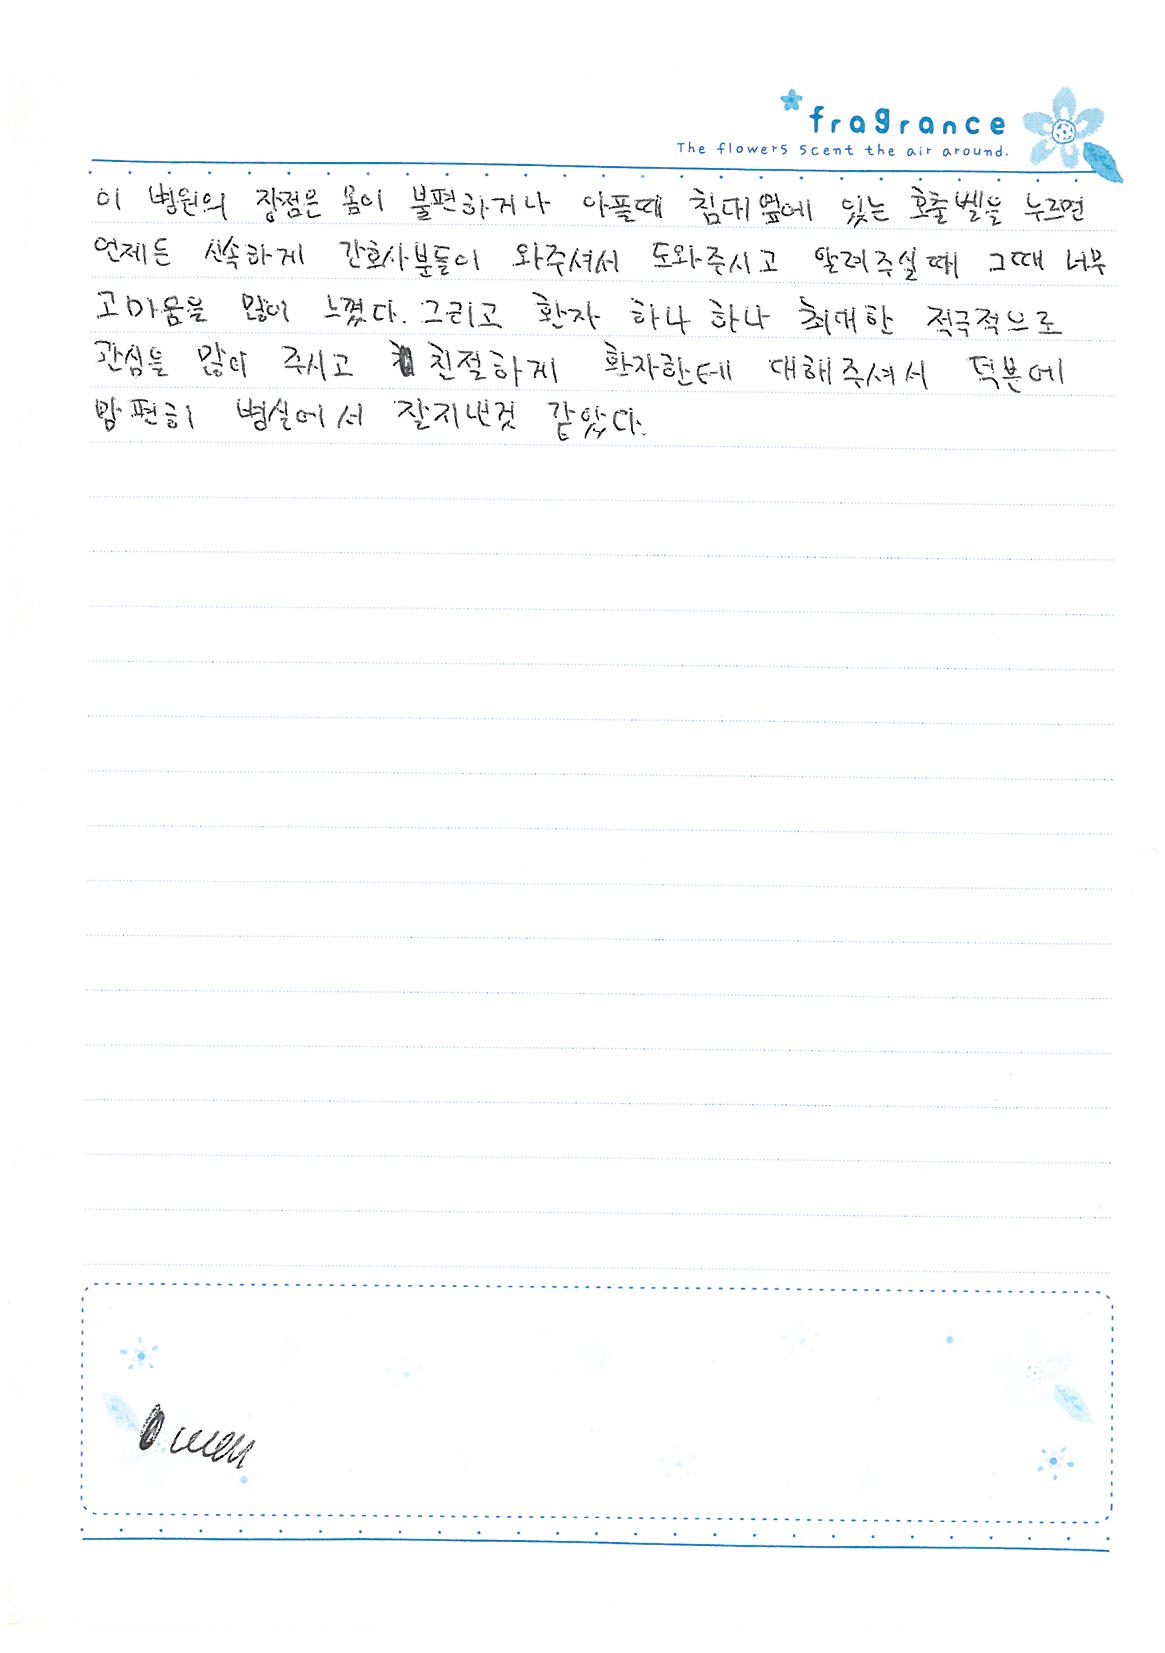 fragrance
The flowers scent the air around.
이 병원의 장점은 몸이 불편하거나 아플때 침대옆에 있는 호출벨을 누르면
언제든 신속하게 간호사분들이 와주셔서 도와주시고 알려주실때 그때 너무
고마움을 많이 느꼈다. 그리고 환자 하나 하나 최대한 적극적으로
관심을 많이 주시고 친절하게 환자한테 대해주셔서 덕분에
맘편히 병실에서 잘지낸것 같았다.